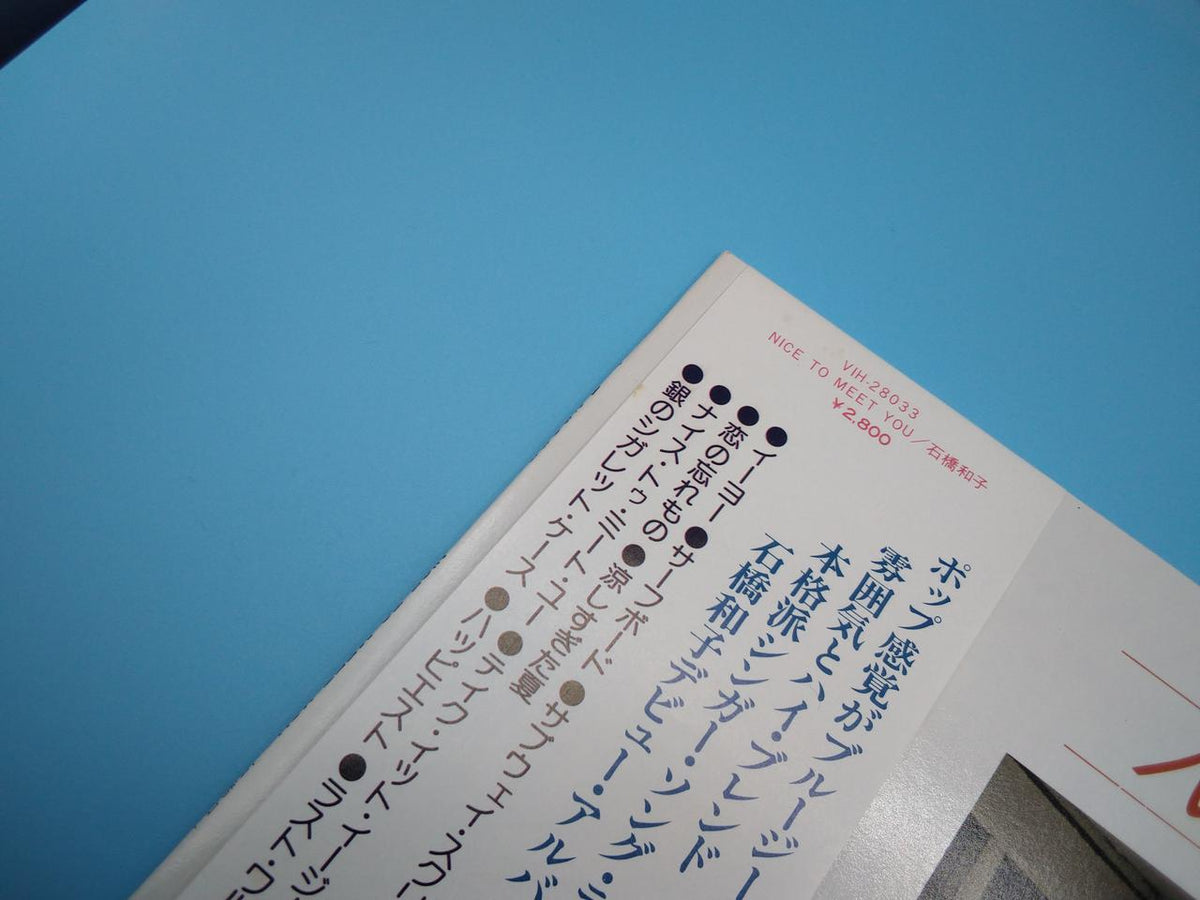 VIH-28033
NICE TO MEET YOU／石橋和子
¥2,800
ポップ感覚がブルージー
雰囲気とハイ・ブレンド
本格派シンガー・ソング・
石橋和子デビュー・アルバ
●イーヨー ●サーフボード ●サブウェイ・スク
●恋の忘れもの ●涼しすぎた夏
●ナイス・トゥ・ミート・ユー ●テイク・イット・イージ
●銀のシガレット・ケース ●ハッピエスト ●ラスト・ワ